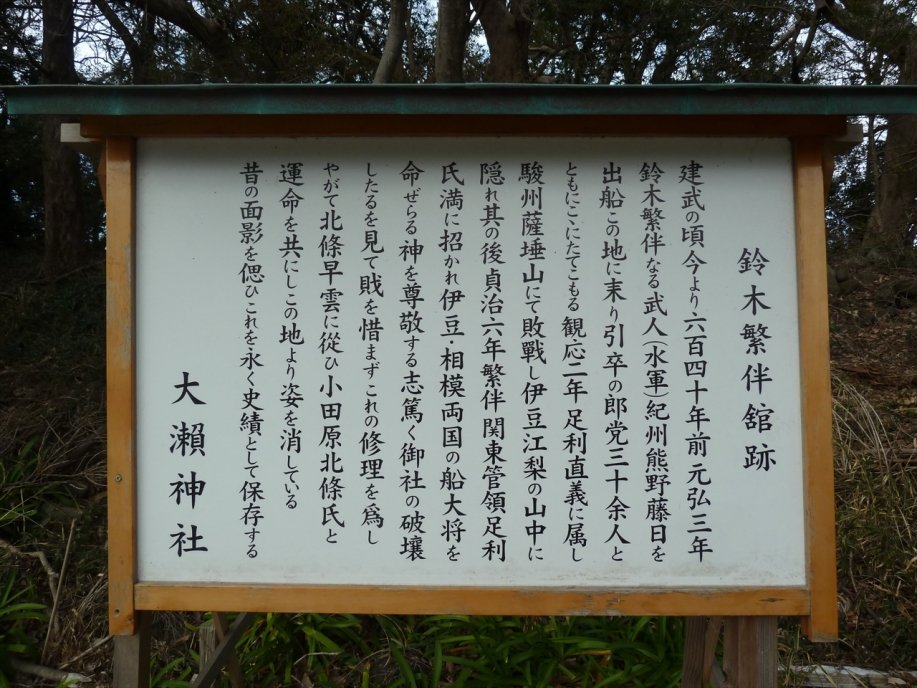 鈴木繁伴舘跡
建武の頃今より六百四十年前元弘三年
鈴木繁伴なる武人(水軍)紀州熊野藤日を
出船この地に末り引卒の郎党三十余人と
ともにこにたてこもる観応二年足利直義に属し
駿州薩埵山にて敗戰し伊豆江梨の山中に
隠れ其の後貞治六年繁伴関東管領足利
氏満に招かれ伊豆・相模両国の船大将を
命ぜらる神を尊敬する志篤く御社の破壊
したるを見て賎を惜まずこれの修理を爲し
やがて北條早雲に從ひ小田原北條氏と
運命を共にしこの地より姿を消している
昔の面影を偲ひこれを永く史績として保存する
大瀬神社